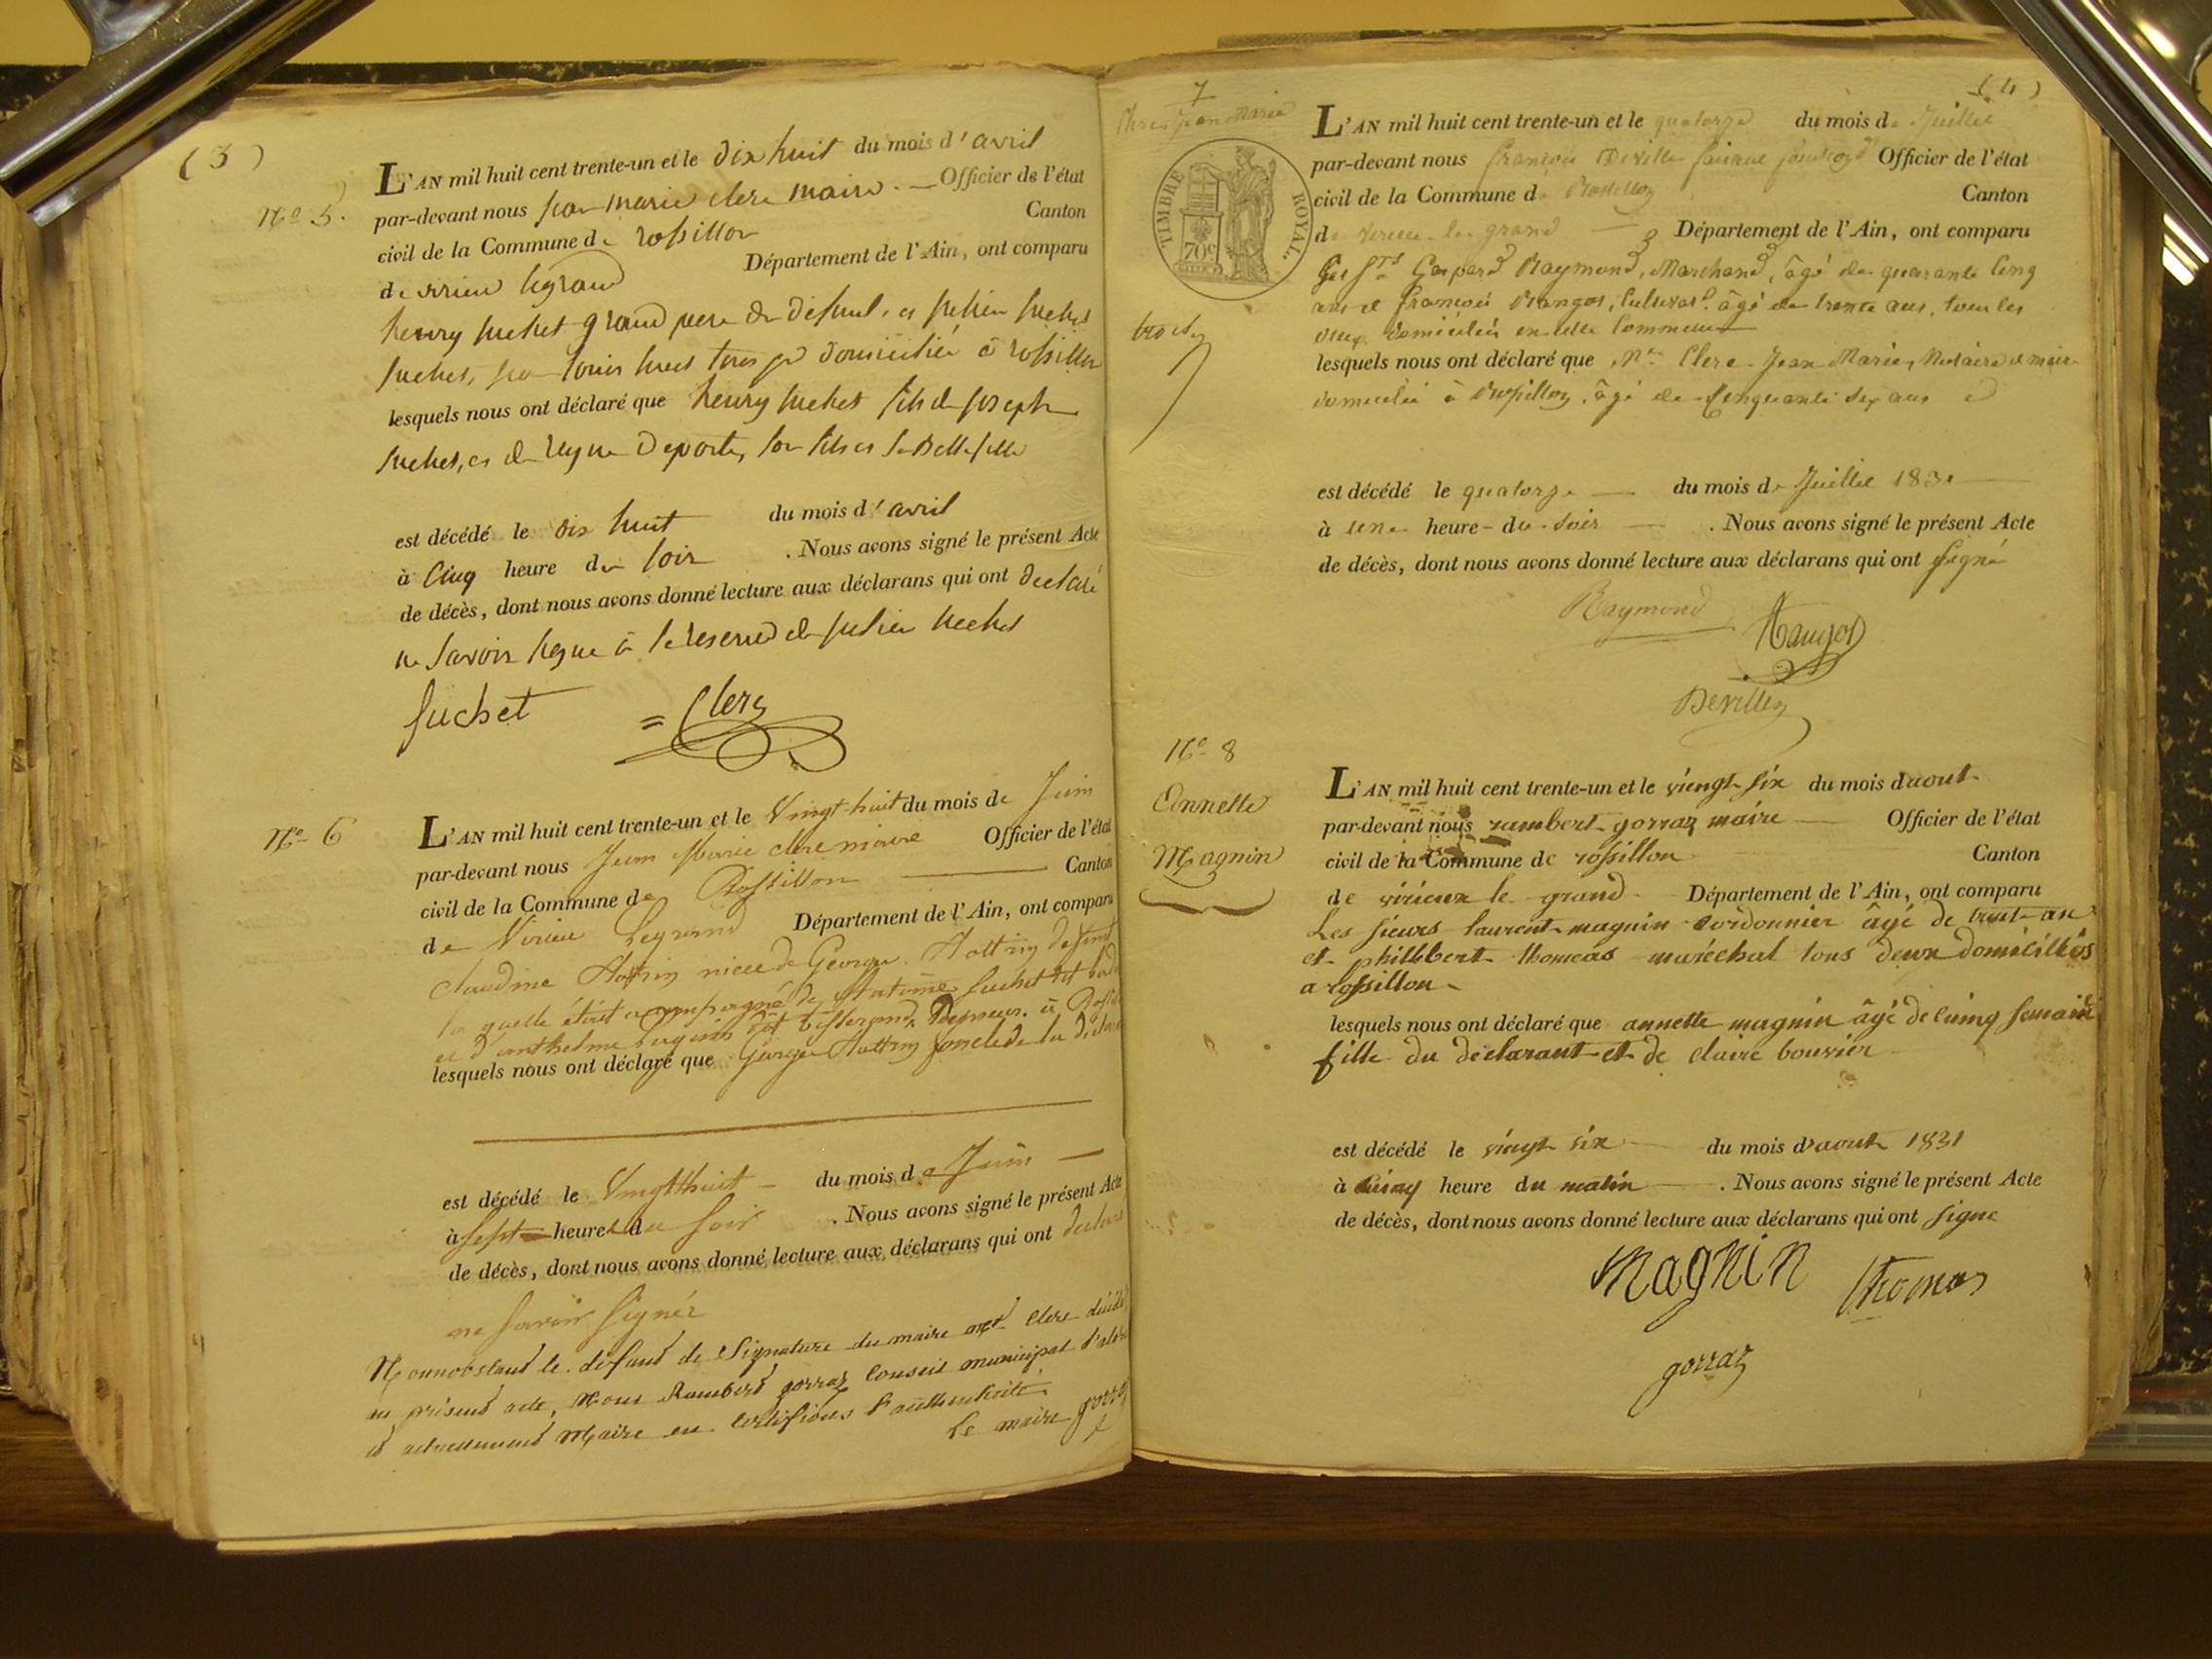 ( 3 )
No 5.
L'AN mil huit cent trente-un et le dix huit du mois d'avril
par-devant nous jean marie clerc maire. — Officier de l'état
civil de la Commune de rossillon Canton
de virieu legrand Département de l'Ain, ont comparu
henry suchet grand pere du defunt, et julien suchet
suchet, tous domiciliés à rossillon
lesquels nous ont déclaré que henry suchet fils de joseph
suchet, et de Deporte, son fils et sa Bellefille
est décédé le dix huit du mois d'avril
à Cinq heure du soir . Nous avons signé le présent Acte
de décès, dont nous avons donné lecture aux déclarans qui ont declaré
ne savoir signe à la reserve de julien suchet
suchet = Clerc
No 6
L'AN mil huit cent trente-un et le Vingt-huit du mois de Juin
par-devant nous Jean Marie clerc maire Officier de l'état
civil de la Commune de Rossillon — Canton
de Virieu Legrand Département de l'Ain, ont comparu
claudine niece de George defunt
la quelle étoit accompagné de suchet dit
et d'anthelme dit tisserand, à
lesquels nous ont déclaré que George l'oncle de la
est décédé le Vingthuit — du mois de Juin —
à Sept heures du Soir . Nous avons signé le présent Acte
de décès, dont nous avons donné lecture aux déclarans qui ont
ne savoir signér
Nonnobstant le défaut de Signature du maire Clerc
au présent acte, Nous Rambert gorraz Conseil municipal d'alors
et actuellement Maire en certifions l'authenticité.
le maire gorraz
( 4 )
7
Clerc Jean Marie
TIMBRE ROYAL.
70c
L'AN mil huit cent trente-un et le quatorze du mois de Juillet
par-devant nous françois Deville Officier de l'état
civil de la Commune de Rossillon Canton
de virieu le grand — Département de l'Ain, ont comparu
Les Srs Gaspard Raymond, Marchand, âgé de quarante Cinq
ans et françois Mangot, Cultivat. âgé de trente ans, tous les
deux domiciliés en cette Commune
lesquels nous ont déclaré que Mr Clerc Jean Marie, Notaire et maire
domicilié à Rossillon, âgé de Cinquante six ans
est décédé le quatorze — du mois de Juillet 1831 —
à une heure du soir — . Nous avons signé le présent Acte
de décès, dont nous avons donné lecture aux déclarans qui ont signé
Raymond Mangot
Deville
No 8
Annette
Magnin
L'AN mil huit cent trente-un et le vingt six du mois daout
par-devant nous rambert gorraz maire — Officier de l'état
civil de la Commune de rossillon Canton
de virieux le grand Département de l'Ain, ont comparu
Les sieurs laurent magnin cordonnier âgé de trente an
et philibert thomas maréchal tous deux domiciliés
a rossillon
lesquels nous ont déclaré que annette magnin âgé de cinq semaine
fille du déclarant et de claire bouvier
est décédé le vingt six — du mois d'aout 1831
à cinq heure du matin — . Nous avons signé le présent Acte
de décès, dont nous avons donné lecture aux déclarans qui ont signe
Magnin thomas
gorraz